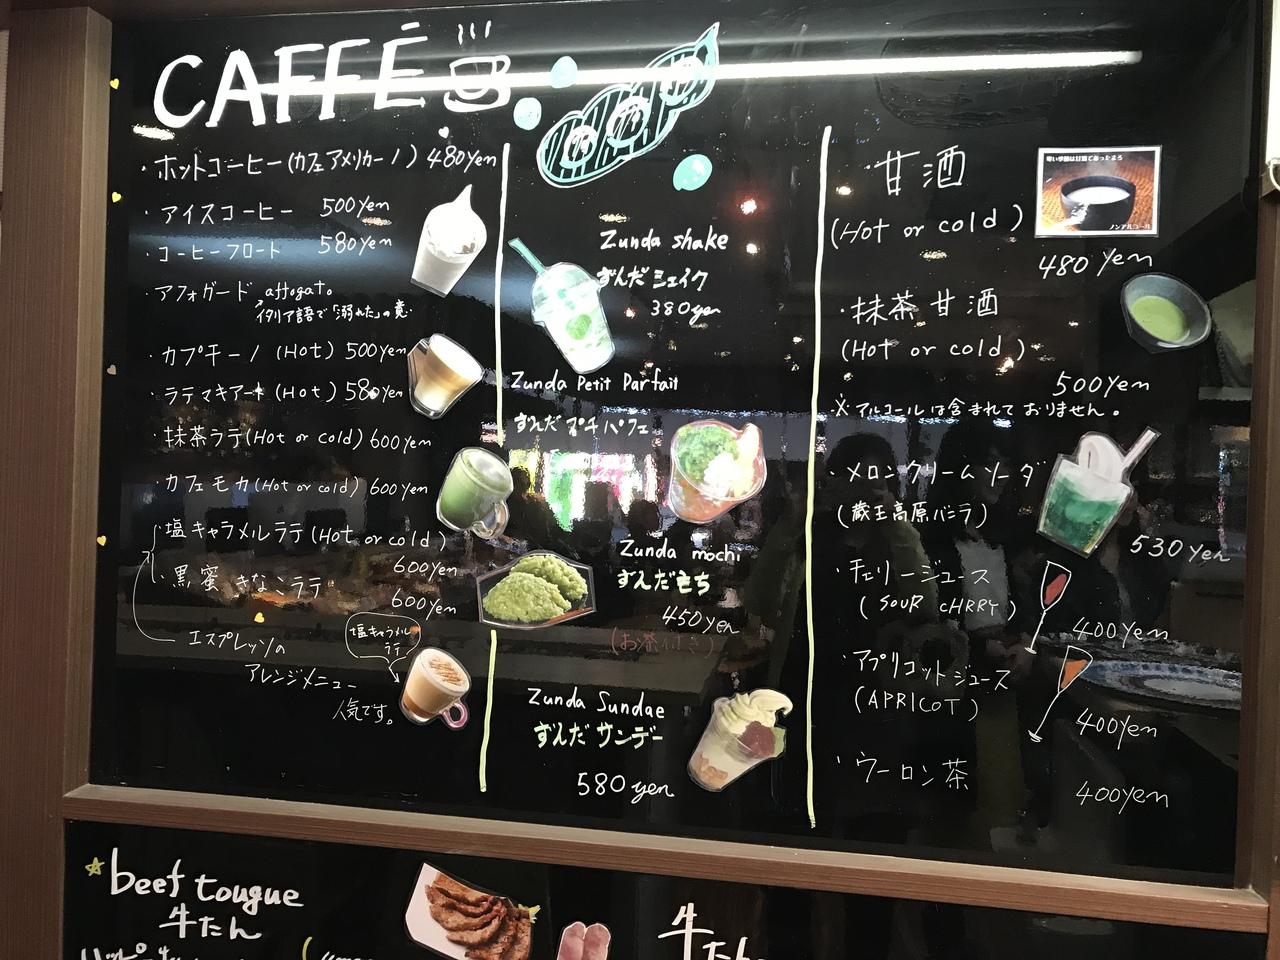 CAFFĒ
・ホットコーヒー(カフェアメリカーノ) 480yen
・アイスコーヒー 500yen
・コーヒーフロート 580yen
・アフォガード affogato
イタリア語で「溺れた」の意.
・カプチーノ (Hot) 500yen
・ラテマキアート (Hot) 580yen
・抹茶ラテ(Hot or cold) 600yen
・カフェモカ(Hot or cold) 600yen
・塩キャラメルラテ(Hot or cold)
600yen
・黒蜜きなこラテ
600yen
エスプレッソの
アレンジメニュー
人気です。
塩キャラメル
ラテ
Zunda shake
ずんだシェイク
380yen
Zunda Petit Parfait
ずんだプチパフェ
Zunda mochi
ずんだもち
450yen
(お茶付き)
Zunda Sundae
ずんだサンデー
580yen
・甘酒
(Hot or cold)
寒い季節は甘酒であったまろ
ノンアルコール
480yen
・抹茶甘酒
(Hot or cold)
500yen
※アルコールは含まれておりません。
・メロンクリームソーダ
(蔵王高原バニラ)
530yen
・チェリージュース
(SOUR cHRRY)
400yen
・アプリコットジュース
(APRICOT)
400yen
・ウーロン茶
400yen
☆beef tougue
牛たん
牛たん